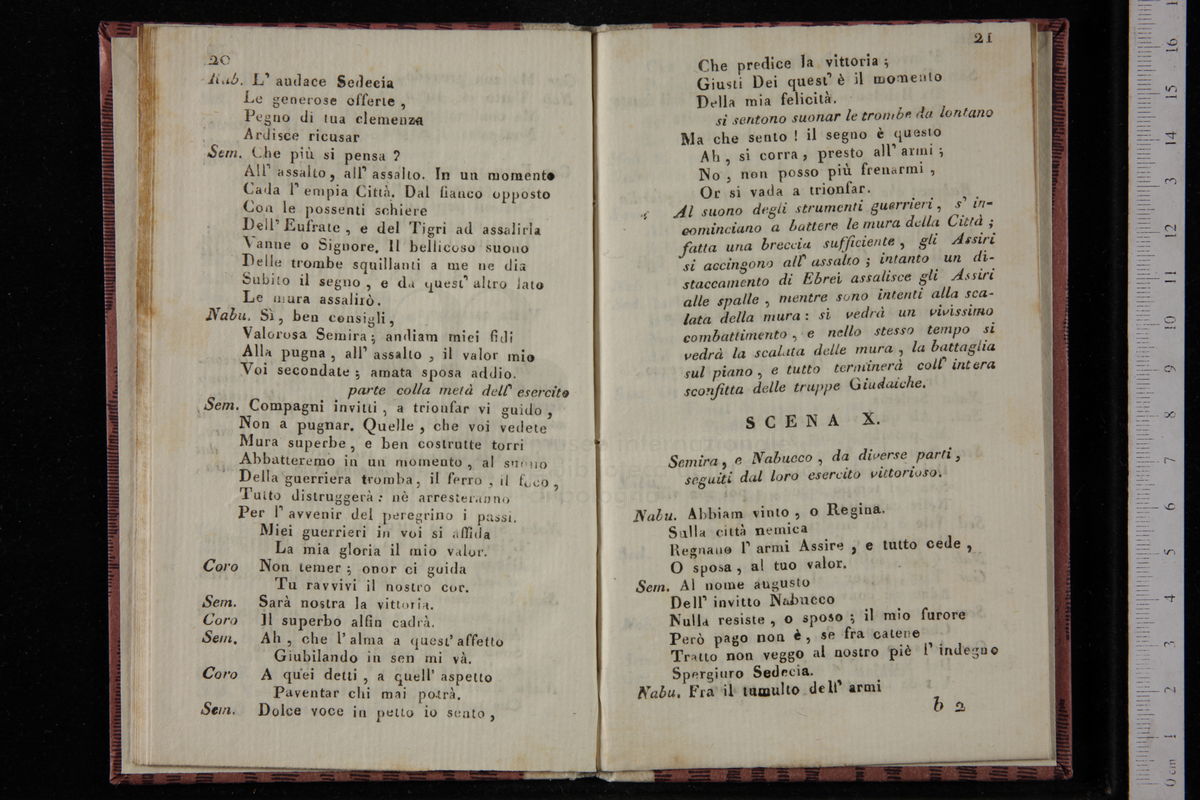 20
Rab. L' audace Sedecia
Le generose offerte ,
Pegno di tua clemenza
Ardisce ricusar
Sem. Che più si pensa ?
All' assalto , all' assalto. In un momento
Cada l' empia Città. Dal fianco opposto
Con le possenti schiere
Dell' Eufrate , e del Tigri ad assalirla
Vanne o Signore. Il bellicoso suono
Delle trombe squillanti a me ne dia
Subito il segno , e da quest' altro lato
Le mura assalirò.
Nabu. Sì , ben consigli ,
Valorosa Semira ; andiam miei fidi
Alla pugna , all' assalto , il valor mio
Voi secondate ; amata sposa addio.
parte colla metà dell' esercito
Sem. Compagni invitti , a trionfar vi guido ,
Non a pugnar. Quelle , che voi vedete
Mura superbe , e ben costrutte torri
Abbatteremo in un momento , al suono
Della guerriera tromba , il ferro , il foco ,
Tutto distruggerà : nè arresteranno
Per l' avvenir del peregrino i passi.
Miei guerrieri in voi si affida
La mia gloria il mio valor.
Coro Non temer ; onor ci guida
Tu ravvivi il nostro cor.
Sem. Sarà nostra la vittoria.
Coro Il superbo alfin cadrà.
Sem. Ah , che l' alma a quest' affetto
Giubilando in sen mi và.
Coro A quei detti , a quell' aspetto
Paventar chi mai potrà.
Sem. Dolce voce in petto io sento ,
21
Che predice la vittoria ;
Giusti Dei quest' è il momento
Della mia felicità.
si sentono suonar le trombe da lontano
Ma che sento ! il segno è questo
Ah , si corra , presto all' armi ;
No , non posso più frenarmi ,
Or si vada a trionfar.
Al suono degli strumenti guerrieri , s' in-
cominciano a battere le mura della Città ;
fatta una breccia sufficiente , gli Assiri
si accingono all' assalto ; intanto un di-
staccamento di Ebrei assalisce gli Assiri
alle spalle , mentre sono intenti alla sca-
lata della mura : si vedrà un vivissimo
combattimento , e nello stesso tempo si
vedrà la scalata delle mura , la battaglia
sul piano , e tutto terminerà coll' intera
sconfitta delle truppe Giudaiche.
SCENA X.
Semira , e Nabucco , da diverse parti ,
seguiti dal loro esercito vittorioso.
Nabu. Abbiam vinto , o Regina.
Sulla città nemica
Regnano l' armi Assire , e tutto cede ,
O sposa , al tuo valor.
Sem. Al nome augusto
Dell' invitto Nabucco
Nulla resiste , o sposo ; il mio furore
Però pago non è , se fra catene
Tratto non veggo al nostro piè l' indegno
Spergiuro Sedecia.
Nabu. Fra il tumulto dell' armi
b 2